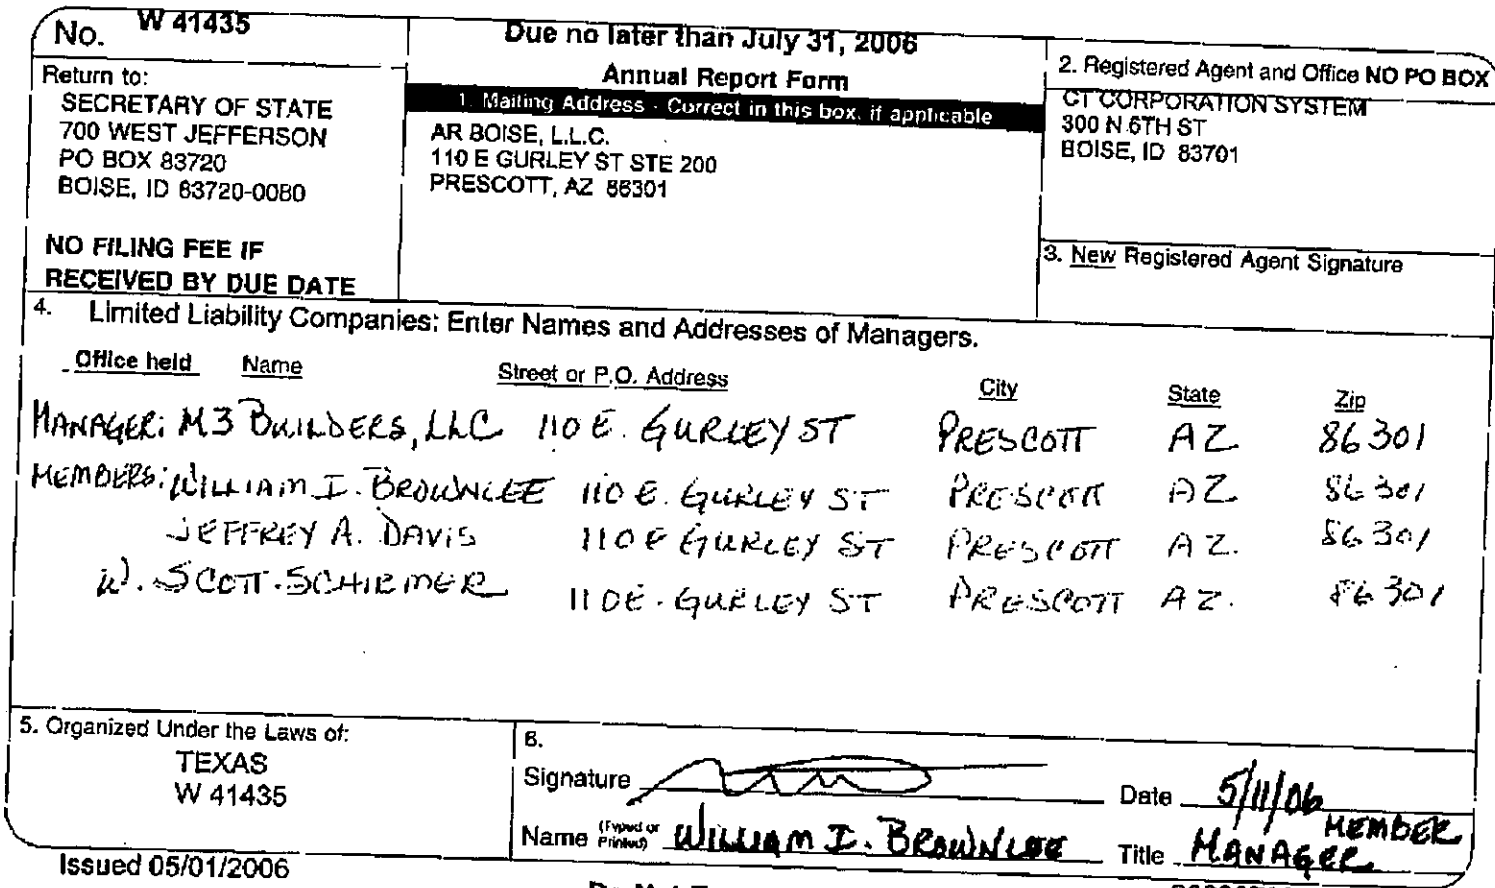 No. W 41435
Return to:
SECRETARY OF STATE
700 WEST JEFFERSON
PO BOX 83720
BOISE, ID 83720-0080
NO FILING FEE IF
RECEIVED BY DUE DATE
Due no later than July 31, 2006
Annual Report Form
1. Mailing Address - Correct in this box, if applicable
AR BOISE, L.L.C.
110 E GURLEY ST STE 200
PRESCOTT, AZ 86301
2. Registered Agent and Office NO PO BOX
CT CORPORATION SYSTEM
300 N 6TH ST
BOISE, ID 83701
3. New Registered Agent Signature
4. Limited Liability Companies: Enter Names and Addresses of Managers.
Office held Name Street or P.O. Address City State Zip
MANAGER: M3 BUILDERS, LLC 110 E. GURLEY ST PRESCOTT AZ 86301
MEMBERS: WILLIAM I. BROWNLEE 110 E. GURLEY ST PRESCOTT AZ 86301
JEFFREY A. DAVIS 110 E GURLEY ST PRESCOTT AZ. 86301
W. SCOTT SCHIRMER 110 E. GURLEY ST PRESCOTT AZ. 86301
5. Organized Under the Laws of:
TEXAS
W 41435
6.
Signature Date 5/11/06
Name (Typed or Printed) WILLIAM I. BROWNLEE Title MEMBER MANAGER
Issued 05/01/2006